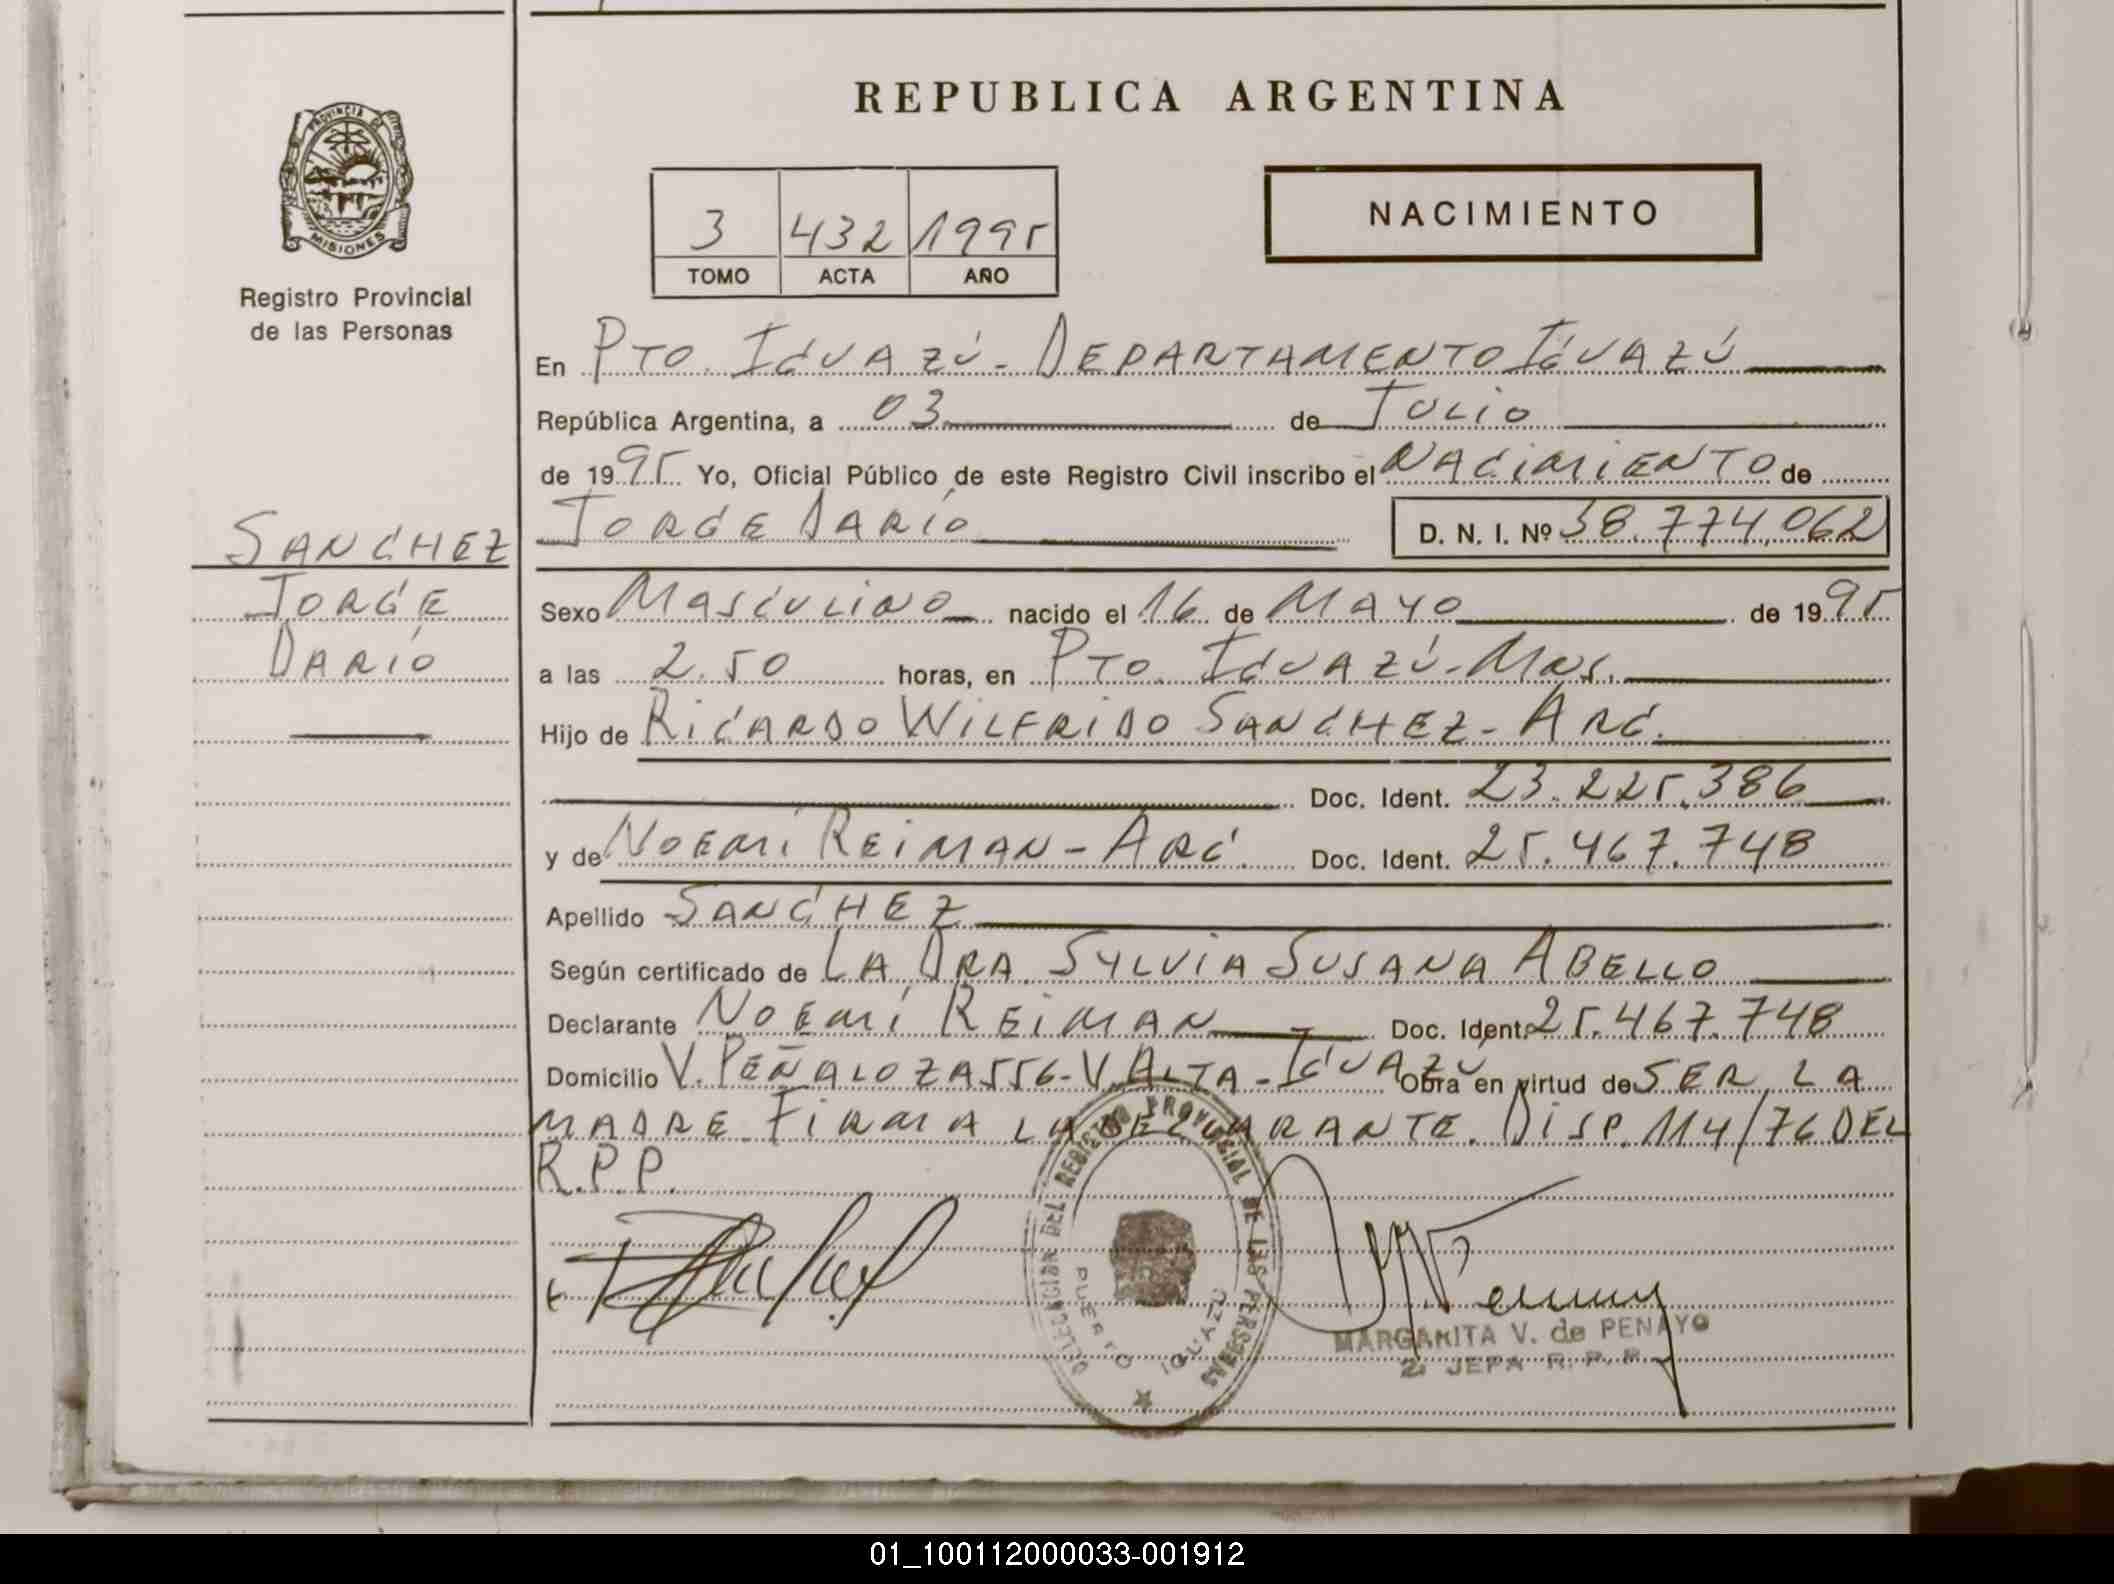 REPUBLICA ARGENTINA
PROVINCIA DE
MISIONES
Registro Provincial
de las Personas
3 432 1995
TOMO ACTA AÑO
NACIMIENTO
En PTO. IGUAZÚ - DEPARTAMENTO IGUAZÚ
República Argentina, a 03 de JULIO
de 1995 Yo, Oficial Público de este Registro Civil inscribo el NACIMIENTO de
JORGE DARÍO D. N. I. Nº 38.774.062
SANCHEZ
JORGE
DARÍO
Sexo MASCULINO nacido el 16 de MAYO de 1995
a las 2.50 horas, en PTO. IGUAZÚ - MNS.
Hijo de RICARDO WILFRIDO SANCHEZ - ARG.
Doc. Ident. 23.225.386
y de NOEMÍ REIMAN - ARG. Doc. Ident. 25.467.748
Apellido SANCHEZ
Según certificado de LA DRA SYLVIA SUSANA ABELLO
Declarante NOEMÍ REIMAN Doc. Ident. 25.467.748
Domicilio V. PEÑALOZA 556 - V. ALTA - IGUAZÚ Obra en virtud de SER LA
MADRE. FIRMA LA DECLARANTE. DISP. 114/76 DEL
R.P.P.
DELEGACION DEL REGISTRO PROVINCIAL DE LAS PERSONAS
PUERTO IGUAZU
MARGARITA V. de PENAYO
JEFA R. P. P.
01_100112000033-001912